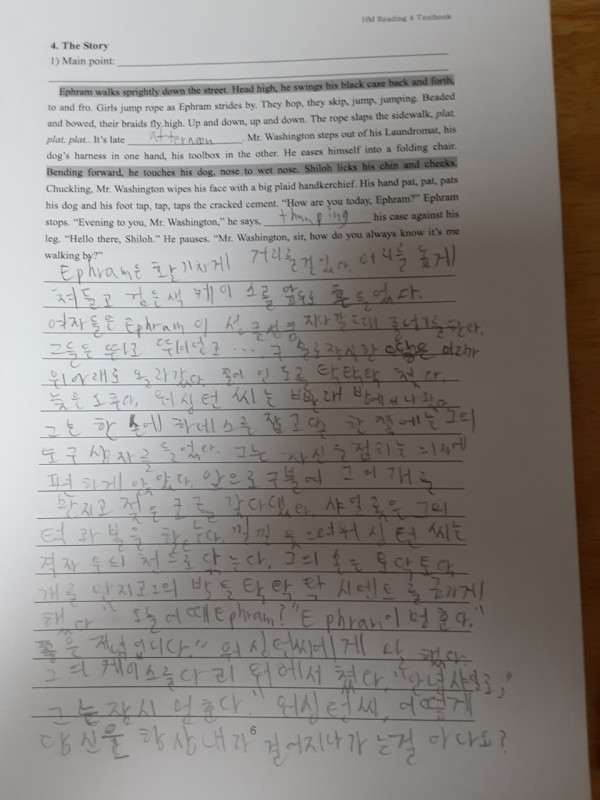 HM Reading 4 Textbook
4. The Story
1) Main point:
Ephram walks sprightly down the street. Head high, he swings his black case back and forth,
to and fro. Girls jump rope as Ephram strides by. They hop, they skip, jump, jumping. Beaded
and bowed, their braids fly high. Up and down, up and down. The rope slaps the sidewalk, plat,
plat, plat. It's late afternoon. Mr. Washington steps out of his Laundromat, his
dog's harness in one hand, his toolbox in the other. He eases himself into a folding chair.
Bending forward, he touches his dog, nose to wet nose. Shiloh licks his chin and cheeks.
Chuckling, Mr. Washington wipes his face with a big plaid handkerchief. His hand pat, pat, pats
his dog and his foot tap, tap, taps the cracked cement. "How are you today, Ephram?" Ephram
stops. "Evening to you, Mr. Washington," he says, thumping his case against his
leg. "Hello there, Shiloh." He pauses. "Mr. Washington, sir, how do you always know it's me
walking by?"
Ephram은 활기차게 거리를 걸었다. 머리를 높게
쳐들고 검은색 케이스를 앞뒤로 흔들었다.
여자들은 Ephram이 성큼성큼 지나갈 때 줄넘기를 한다.
그들은 뛰고 뛰어넘고 ... 구슬로 장식한 머리가
위아래로 올라갔다. 줄이 인도를 탁탁탁 쳤다.
늦은 오후다. 워싱턴 씨는 빨래 방에서 나왔다.
그는 한 손에 하네스를 잡고 다른 한 쪽에는 그의
도구 상자를 들었다. 그는 자신을 접히는 의자에
편하게 앉았다. 앞으로 구부려 그의 개를
만지고 젖은 코를 갖다댔다. 샤일로는 그의
턱과 볼을 핥는다. 낄낄 웃으며 워싱턴 씨는
격자 무늬 천으로 닦는다. 그의 손은 토닥토닥
개를 만지고 그의 발은 탁탁탁 시멘트를
했다 "오늘 어때 Ephram?" Ephram이 멈춘다."
좋은 저녁입니다" 워싱턴씨에게 말했다.
그의 케이스를 다리 위에서 쳤다. "안녕 샤일로,"
그는 잠시 멈춘다." 워싱턴씨, 어떻게
당신은 항상 내가 걸어 지나가는걸 아나요?
6